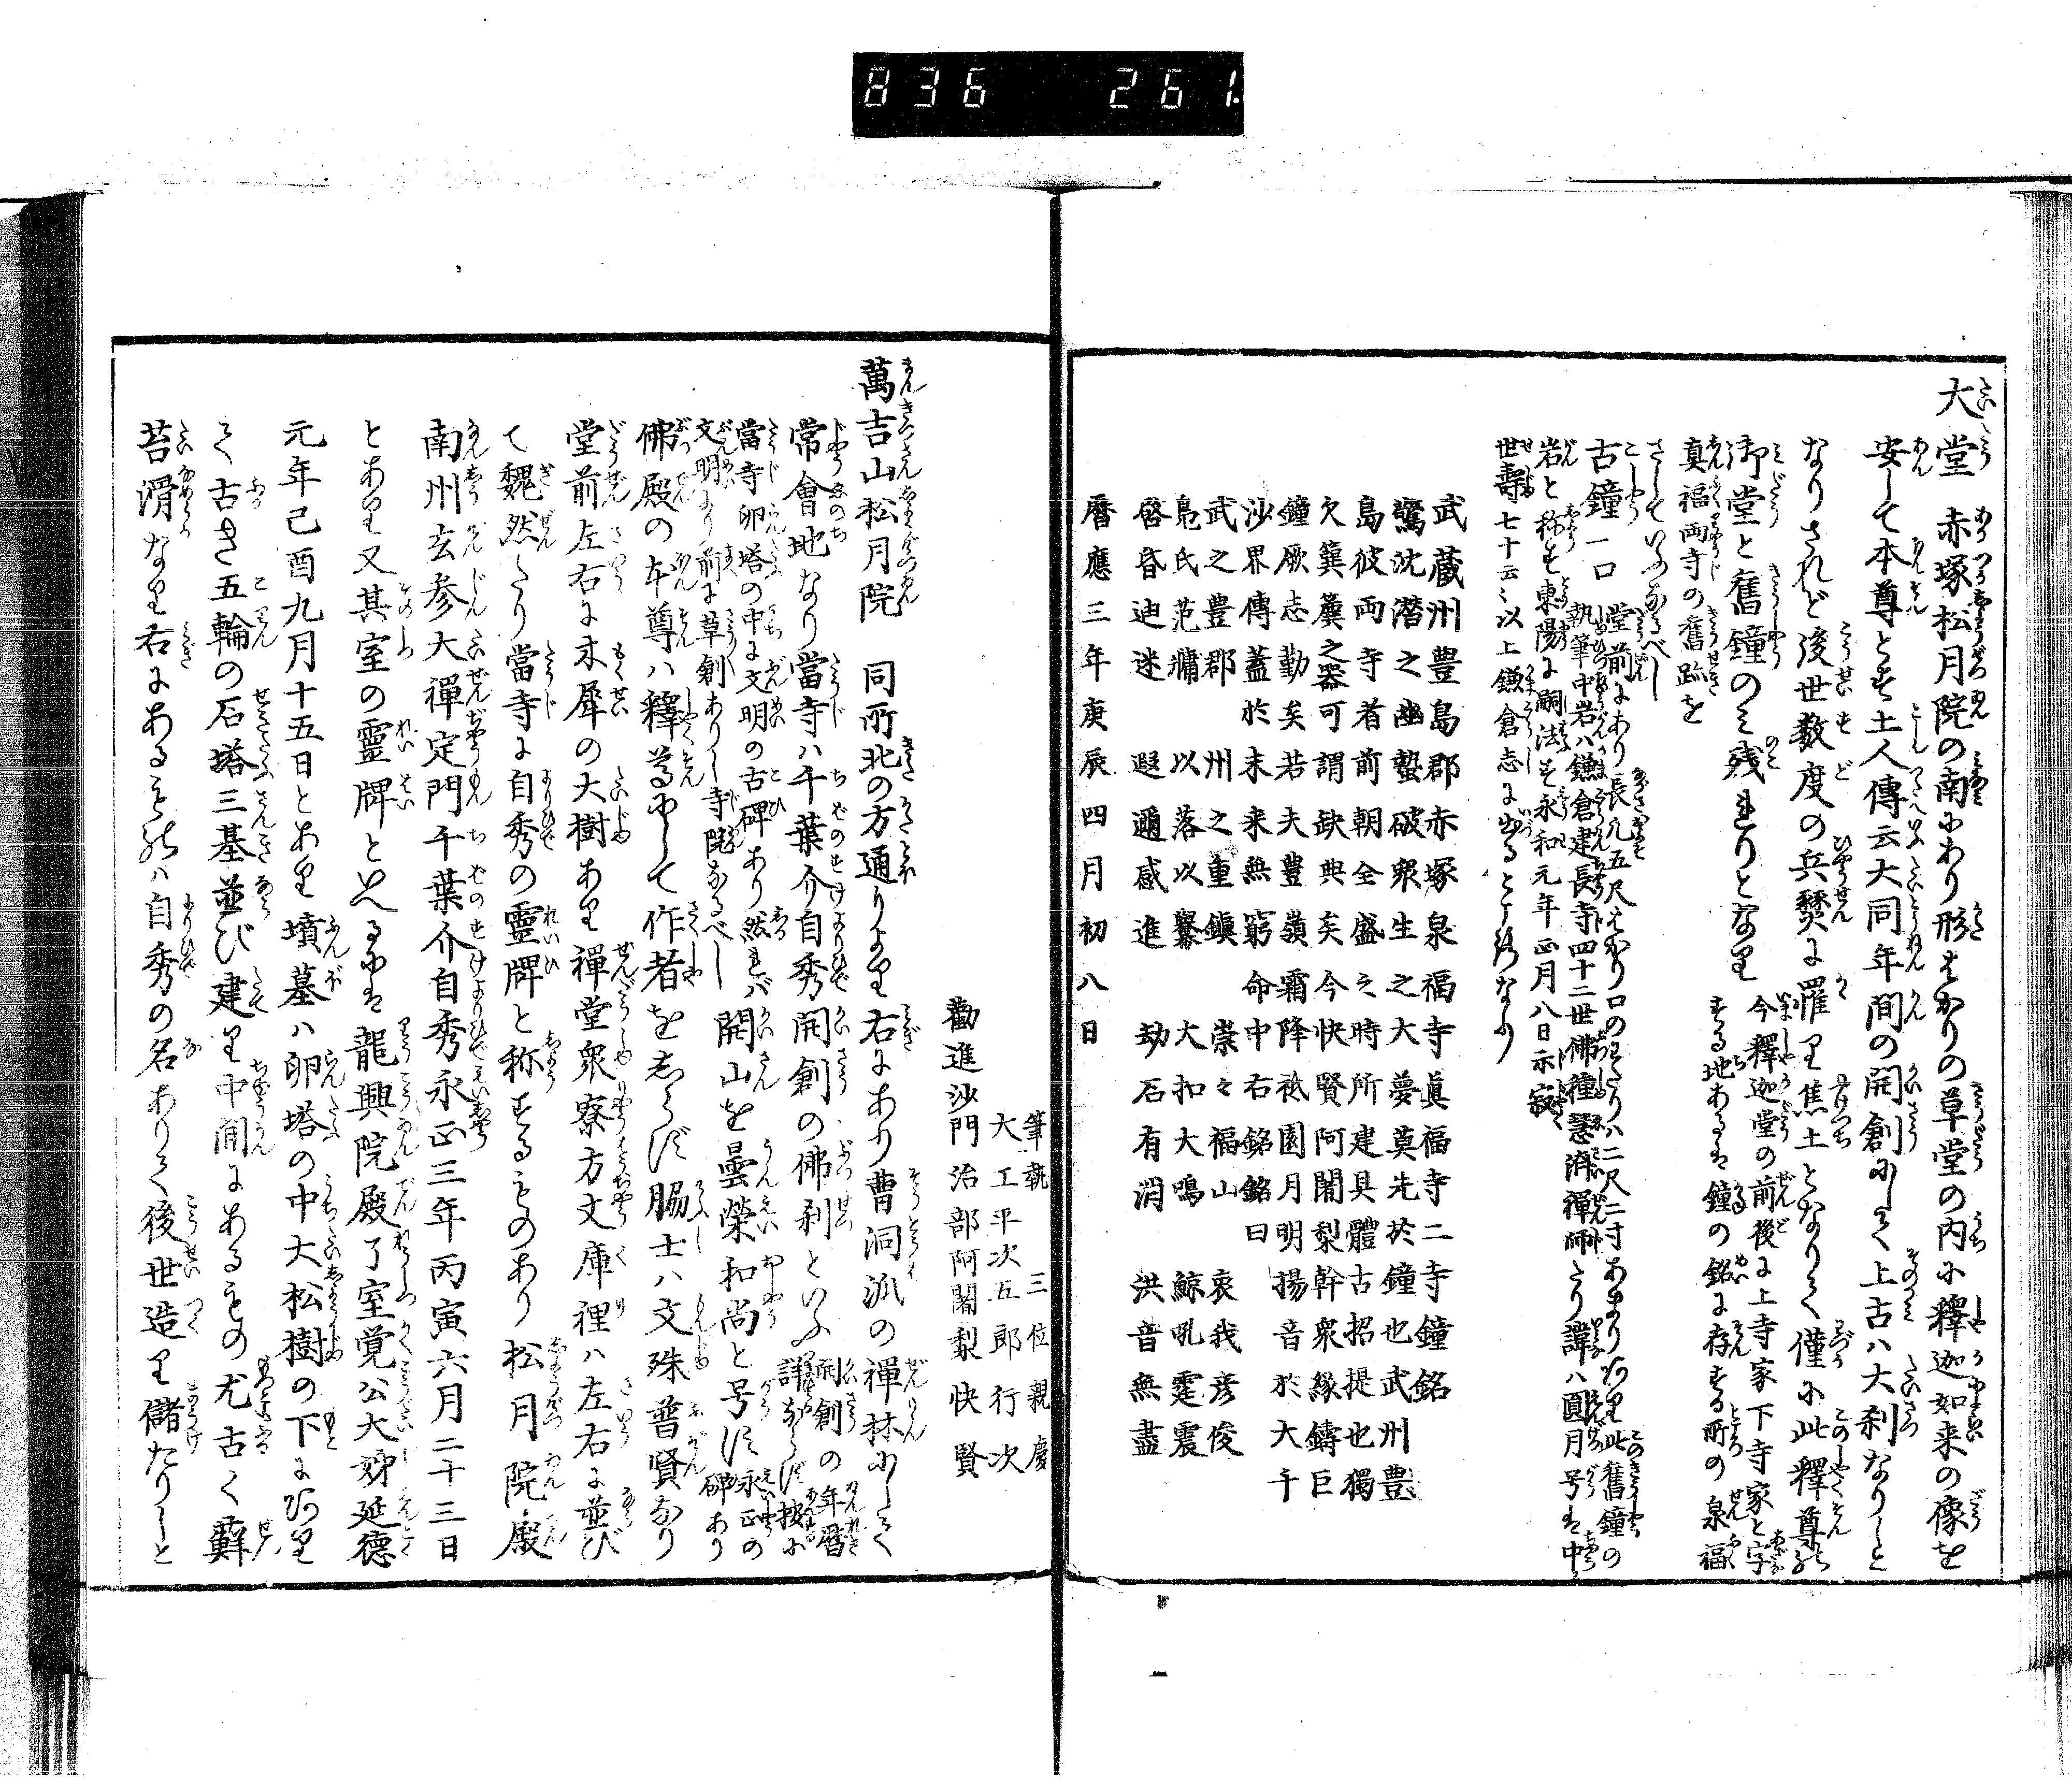 836 261.
大堂 赤塚松月院の南にあり形ばかりの草堂の内に釋迦如来の像を
安して本尊とす土人傳云大同年間の開創にして上古ハ大刹なりしと
なりされど後世数度の兵燹に罹り焦土となりて僅に此釋尊の
御堂と舊鐘のミ残れりとなり 今釋迦堂の前後に上寺家下寺家と字
する地あるは鐘の銘に存する所の泉福
真福両寺の舊跡を
さしていふなるべし
古鐘一口 堂前にあり長凡五尺ばかり口のわたり八二尺三寸あまりあり此舊鐘の
執筆中岩ハ鎌倉建長寺四十二世佛種慧済禪師たり諱ハ圓月号は中
岩と称す東陽に嗣法す永和元年正月八日示寂
世壽七十云〻以上鎌倉志に出るところなり
武蔵州豊島郡赤塚泉福寺眞福寺二寺鐘銘
驚沈潜之幽蟄破衆生之大夢莫先於鐘也武州豊
島彼両寺者前朝全盛之時所建具體古招提也獨
欠簨簴之器可謂缺典矣今快賢阿闍梨幹衆縁鑄巨
鐘厥志勤矣若夫豊嶺霜降祇園月明揚音於大千
沙界傳蓋於末来無窮命中右銘銘曰
武之豊郡 州之重鎭 崇々福山 哀我彦俊
鳧氏范鏞 以落以釁 大扣大鳴 鯨吼霆震
啓昏迪迷 遐邇感進 劫石有消 洪音無盡
曆應三年庚辰四月初八日
筆執 三位親慶
大工平次五郎行次
勸進沙門治部阿闍梨快賢
萬吉山松月院 同所北の方通りより右にあり曹洞派の禪林にして
常會地なり當寺ハ千葉介自秀開創の佛刹といふ 開創の年暦
詳ならず按に
當寺卵塔の中に文明の古碑あり然れバ
文明より前に草創ありし寺院なるべし 開山を曇榮和尚と号す 永正の
碑あり
佛殿の本尊ハ釋尊にして作者をしらず脇士ハ文殊普賢なり
堂前左右に木犀の大樹あり禪堂衆寮方丈庫裡ハ左右に並び
て巍然たり當寺に自秀の靈牌と称するものあり 松月院殿
南州玄参大禪定門千葉介自秀永正三年丙寅六月二十三日
とあり又其室の靈牌といへるには龍興院殿了室覚公大姉延徳
元年己酉九月十五日とあり墳墓ハ卵塔の中大松樹の下にあり
て古き五輪の石塔三基並び建り中間にあるもの尤古く蘚
苔滑なり右にあるものハ自秀の名ありて後世造り儲たりしと